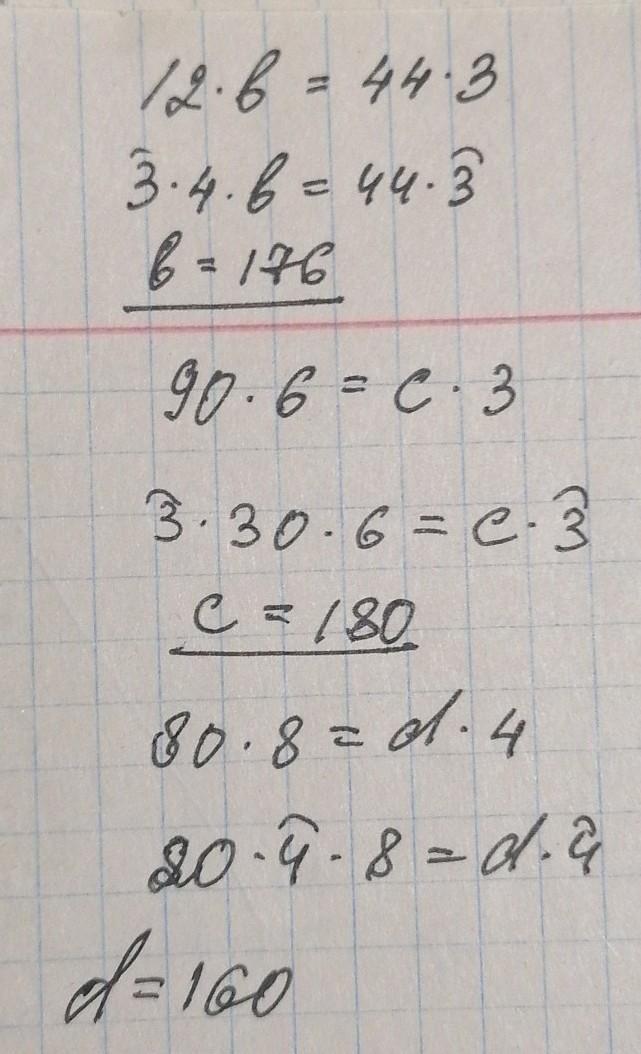 12·b = 44·3
3·4·b = 44·3
b = 176
90·6 = c·3
3·30·6 = c·3
c = 180
80·8 = d·4
20·4·8 = d·4
d = 160